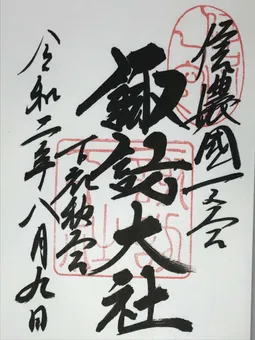 信濃國一之宮
諏訪大社
下社秋宮
令和二年八月九日